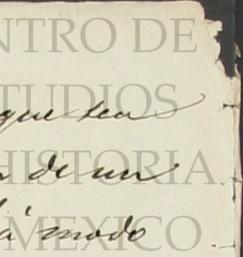 NTRO DE
TUDIOS
que sea
HISTORIA
de un
á modo
MEXICO